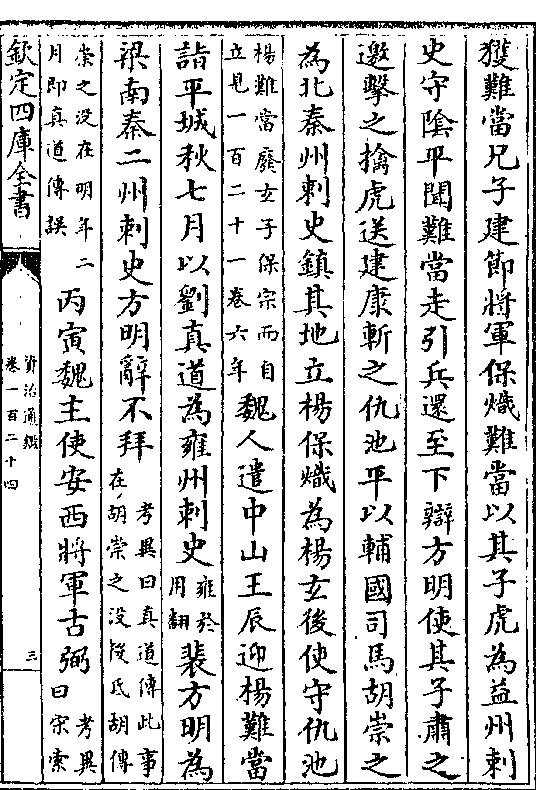 獲難當兄子建節將軍保熾難當以其子虎為益州刺
史守陰平聞難當走引兵還至下辯方明使其子肅之
邀擊之擒虎送建康斬之仇池平以輔國司馬胡崇之
為北秦州刺史鎮其地立楊保熾為楊玄後使守仇池
楊難當廢玄子保宗而自立見一百二十一卷六年魏人遣中山王辰迎楊難當
詣平城秋七月以劉真道為雍州刺史雍於用翻裴方明為
梁南秦二州刺史方明辭不拜考異曰真道傳此事在胡崇之沒後氐胡傳
崇之沒在明年二月即真道傳誤丙寅魏主使安西將軍古弼考異曰宋索
欽定四庫全書
資治通鑑
卷一百二十四
三